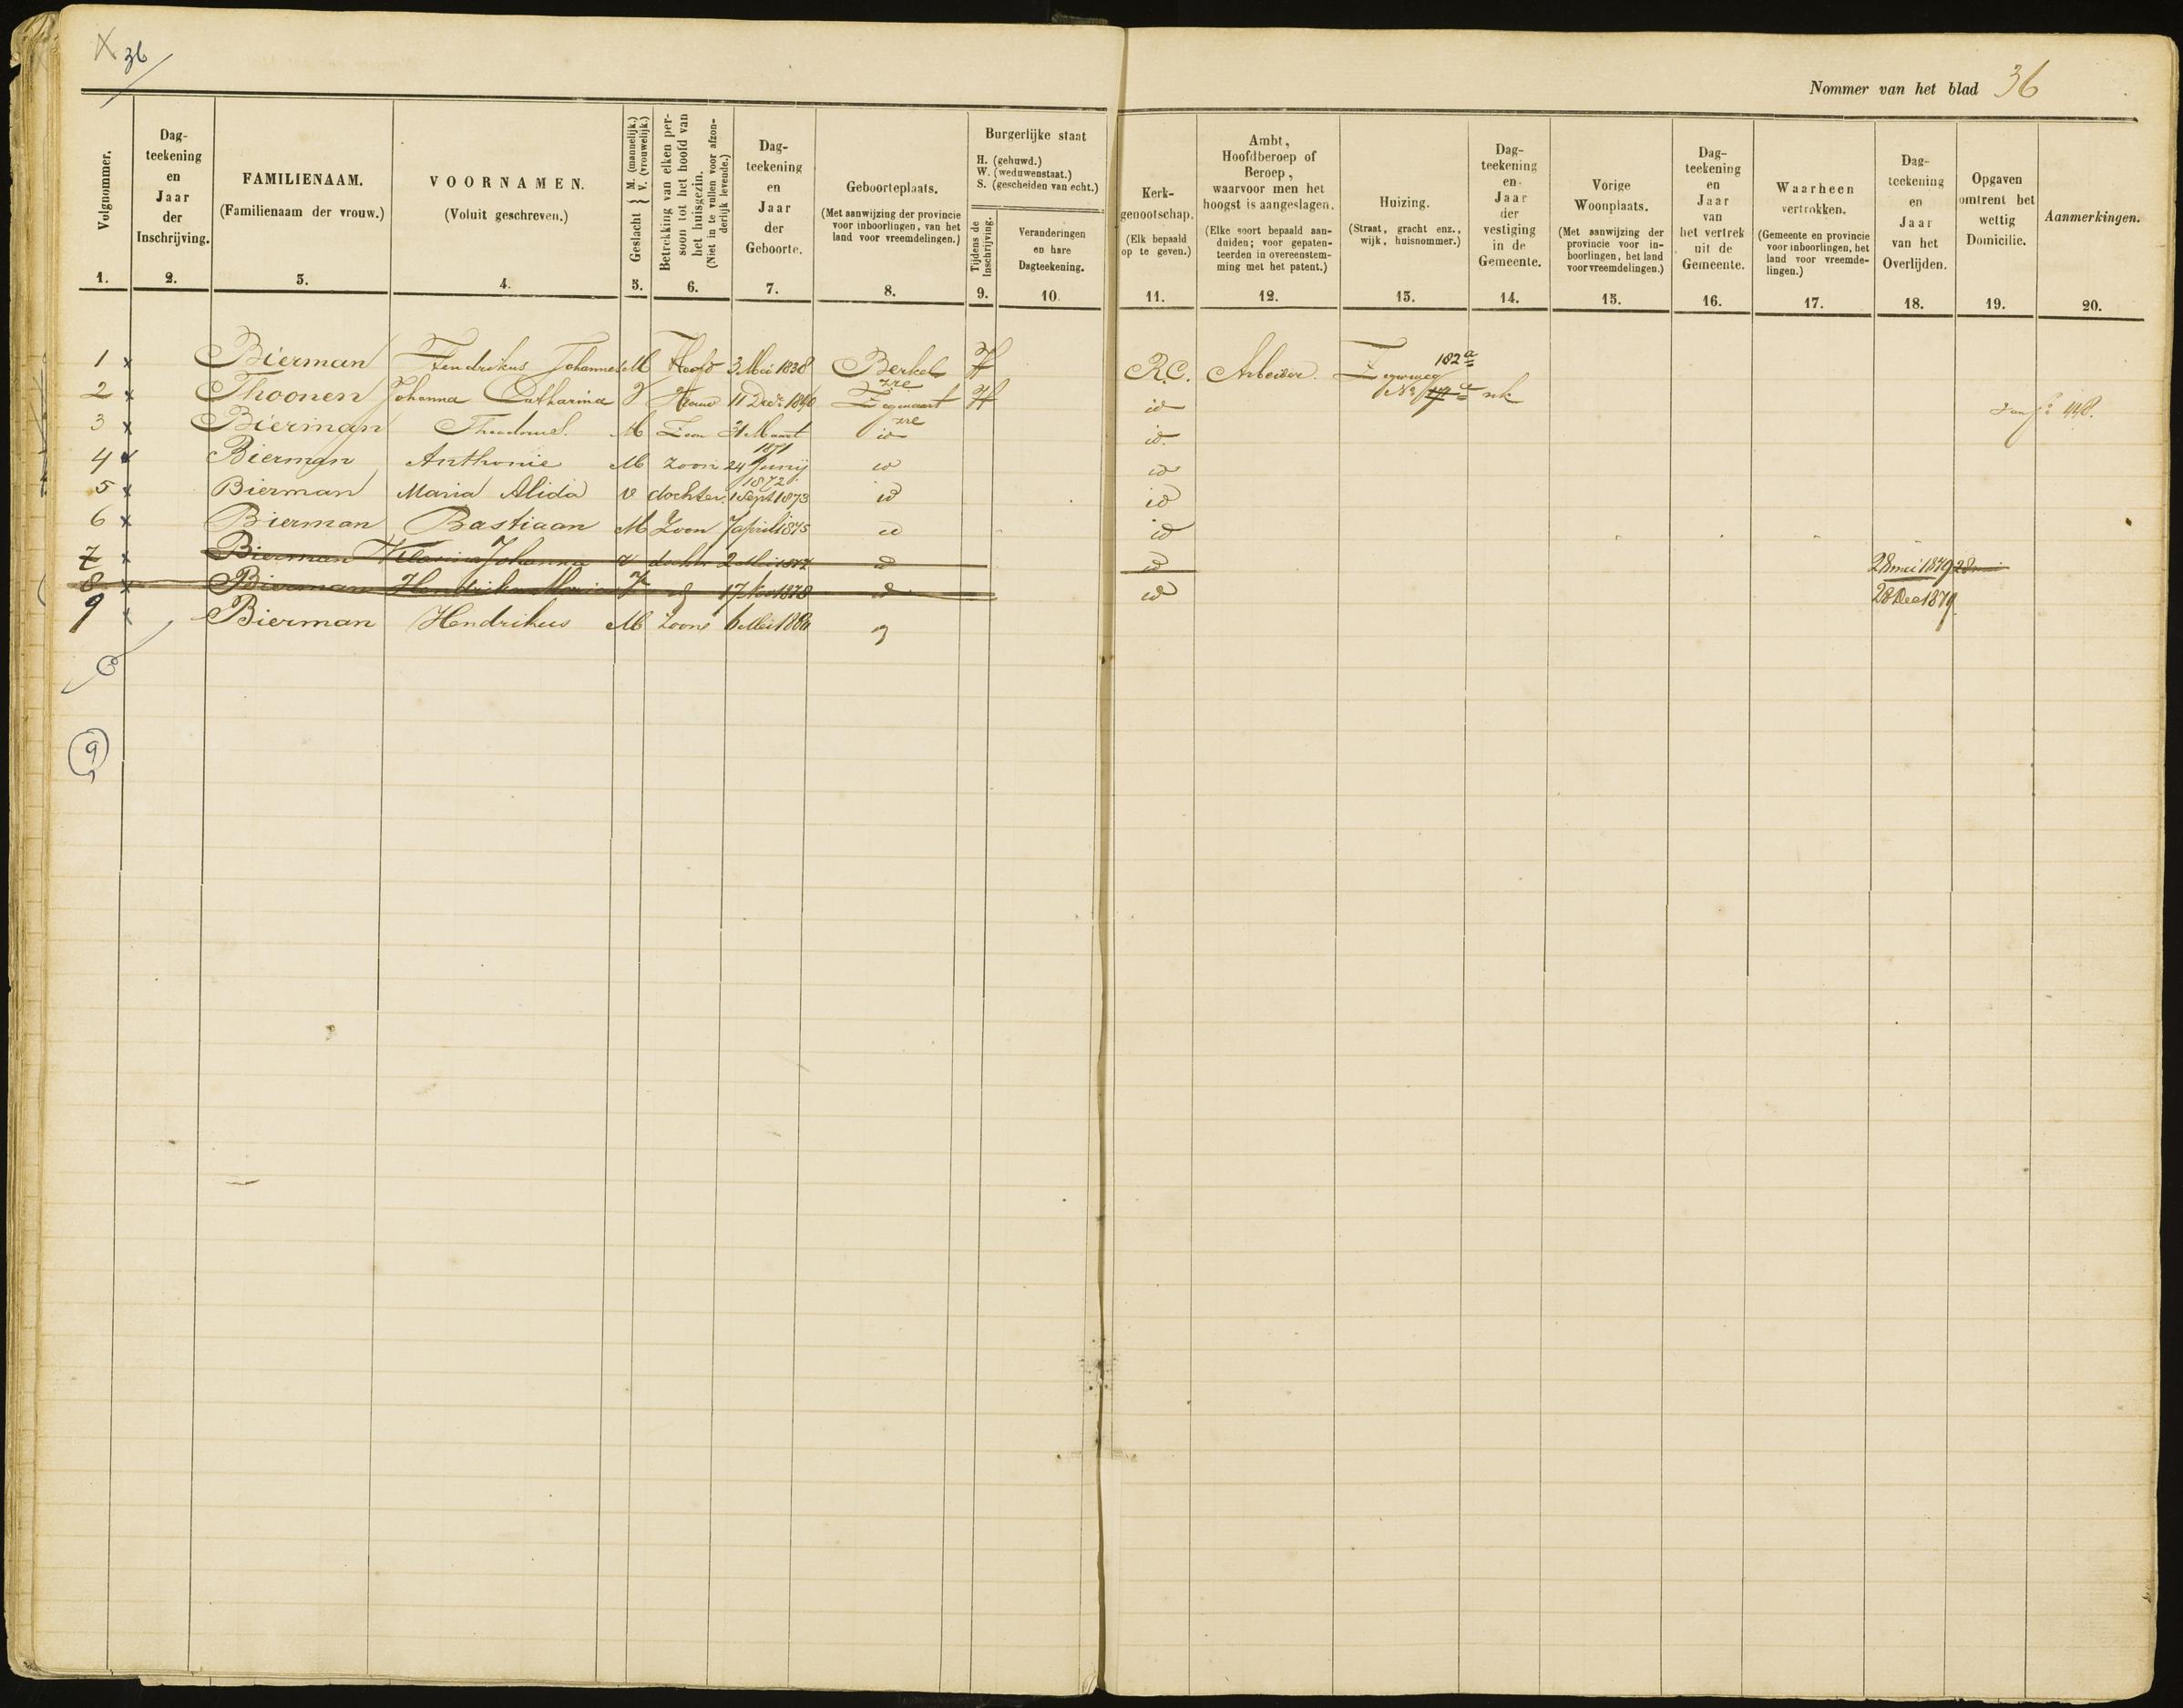 36
Nommer van het blad 36
Volgnommer.
1.
Dag-
teekening
en
Jaar
der
Inschrijving.
2.
FAMILIENAAM.
(Familienaam der vrouw.)
3.
VOORNAMEN.
(Voluit geschreven.)
4.
Geslacht { M. (mannelijk.) V. (vrouwelijk.)
5.
Betrekking van elken per-
soon tot het hoofd van
het huisgezin.
(Niet in te vullen voor afzon-
derlijk levende.)
6.
Dag-
teekening
en
Jaar
der
Geboorte.
7.
Geboorteplaats.
(Met aanwijzing der provincie
voor inboorlingen, van het
land voor vreemdelingen.)
8.
Burgerlijke staat
H. (gehuwd.)
W. (weduwenstaat.)
S. (gescheiden van echt.)
Tijdens de
Inschrijving.
9.
Veranderingen
en hare
Dagteekening.
10.
Kerk-
genootschap.
(Elk bepaald
op te geven.)
11.
Ambt,
Hoofdberoep of
Beroep,
waarvoor men het
hoogst is aangeslagen.
(Elke soort bepaald aan-
duiden; voor gepaten-
teerden in overeenstem-
ming met het patent.)
12.
Huizing.
(Straat, gracht enz.,
wijk, huisnommer.)
13.
Dag-
teekening
en
Jaar
der
vestiging
in de
Gemeente.
14.
Vorige
Woonplaats.
(Met aanwijzing der
provincie voor in-
boorlingen, het land
voor vreemdelingen.)
15.
Dag-
teekening
en
Jaar
van
het vertrek
uit de
Gemeente.
16.
Waarheen
vertrokken.
(Gemeente en provincie
voor inboorlingen, het
land voor vreemde-
lingen.)
17.
Dag-
teekening
en
Jaar
van het
Overlijden.
18.
Opgaven
omtrent het
wettig
Domicilie.
19.
Aanmerkingen.
20.
1 x Bierman Hendrikus Johannes M Hoofd 3 Mei 1838 Berkel H R.C. Arbeider Zegweg 182a
2 x Thoonen Johanna Catharina V Vrouw 11 Decr 1840 Zegwaart H id No
3 x Bierman Theodorus M Zoon 31 Maart 1871 id id
4 x Bierman Anthonie M zoon 24 Junij 1872 id id
5 x Bierman Maria Alida V dochter 1 Sept 1873 id id
6 x Bierman Bastiaan M Zoon 7 april 1875 id id
7 x Bierman Johanna V dochter 2 Mei 1877 id id 28 mei 1879
8 x Bierman Hendrika Maria V 17 Nov 1878 id id 28 Dec 1879
9 x Bierman Hendrikus M Zoon 6 Mei 1880
9